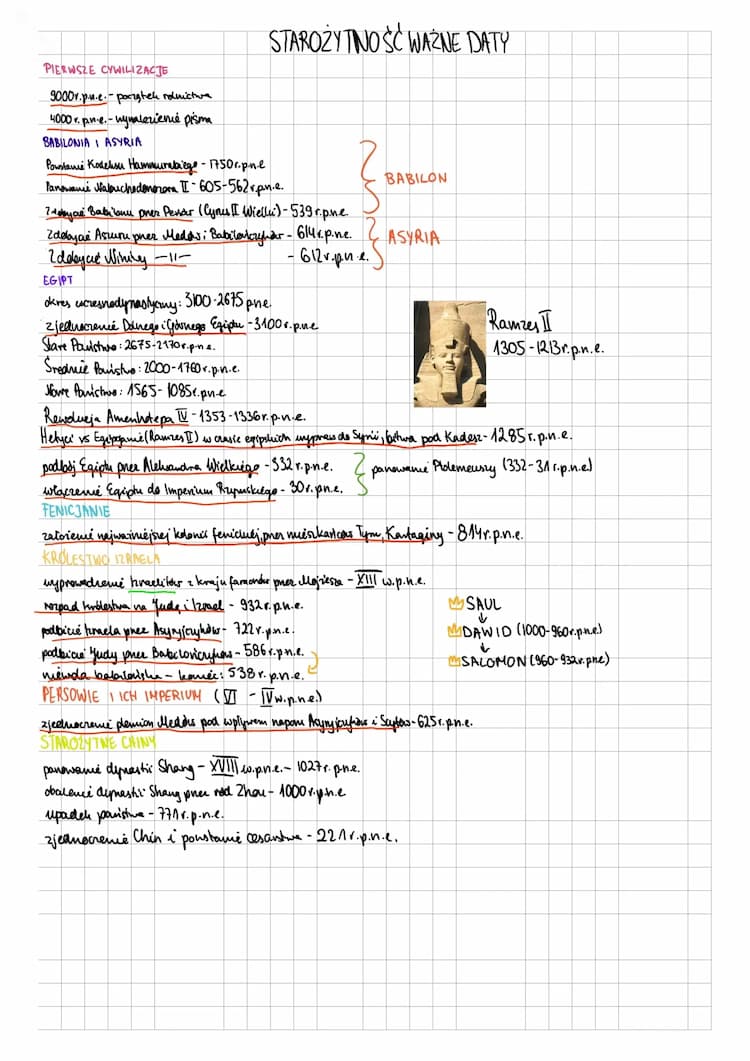 STAROŻYTNOŚĆ WAŻNE DATY
PIERWSZE CYWILIZACJE
9000r.p.n.e.- początek rolnictwa
4000 r. p.n.e.- wynalezienie pisma
BABILONIA I ASYRIA
Powstanie Kodeksu Hammurabiego - 1750r.p.n.e
Panowanie Nabuchodonozora II - 605-562r.p.n.e.
Zdobycie Babilonu przez Persów (Cyrus II Wielki) - 539 r.p.n.e.
BABILON
Zdobycie Aszuru przez Medów i Babilończyków - 614r.p.n.e.
Zdobycie Niniwy —11— - 612r.p.n.e.
ASYRIA
EGIPT
okres wczesnodynastyczny: 3100-2675 p.n.e.
zjednoczenie Dolnego i Górnego Egiptu - 3100r.p.n.e
Stare Państwo: 2675-2170r.p.n.e.
Średnie Państwo: 2000-1760r.p.n.e.
Nowe Państwo: 1565-1085r.p.n.e
Ramzes II
1305-1213r.p.n.e.
Rewolucja Amenhotepa IV - 1353-1336r.p.n.e.
Hetyci vs Egipcjanie (Ramzes II) w czasie egipskich wypraw do Syrii, bitwa pod Kadesz - 1285r.p.n.e.
podbój Egiptu przez Aleksandra Wielkiego - 332r.p.n.e.
włączenie Egiptu do Imperium Rzymskiego - 30r.p.n.e.
panowanie Ptolemeuszy (332-31r.p.n.e)
FENICJANIE
założenie najważniejszej kolonii fenickiej, przez mieszkańców Tyru, Kartaginy - 814r.p.n.e.
KRÓLESTWO IZRAELA
wyprowadzenie Izraelitów z kraju faraonów przez Mojżesza - XIII w.p.n.e.
rozpad królestwa na Judę i Izrael - 932r.p.n.e.
podbicie Izraela przez Asyryjczyków - 722r.p.n.e.
podbicie Judy przez Babilończyków - 586r.p.n.e.
niewola babilońska - koniec: 538r.p.n.e.
SAUL
DAWID (1000-960r.p.n.e.)
SALOMON (960-932r.p.n.e)
PERSOWIE I ICH IMPERIUM (VI - IV w.p.n.e.)
zjednoczenie plemion Medów pod wpływem naporu Asyryjczyków i Scytów - 625r.p.n.e.
STAROŻYTNE CHINY
panowanie dynastii Shang - XVIII w.p.n.e. - 1027r.p.n.e.
obalenie dynastii Shang przez ród Zhou - 1000r.p.n.e
upadek państwa - 771r.p.n.e.
zjednoczenie Chin i powstanie cesarstwa - 221r.p.n.e.